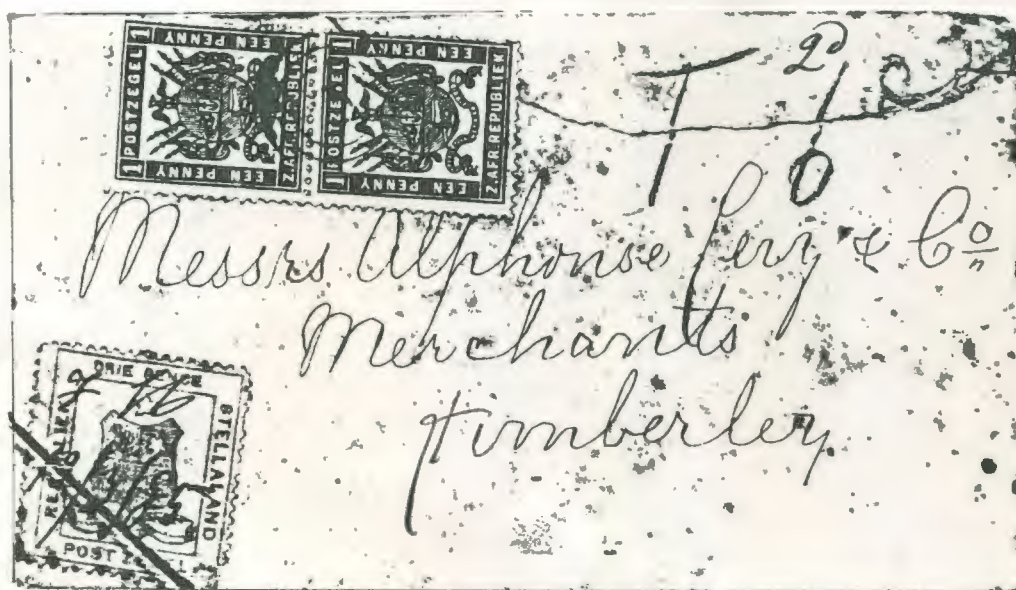 1 EEN PENNY 1
POSTZEGEL
Z.AFR.REPUBLIEK
EEN PENNY
1 EEN PENNY 1
Z.AFR.REPUBLIEK
EEN PENNY
2d
T 1
0
Messrs Alphonse Levy & Co
Merchants
Kimberley
DRIE PENCE
STELLALAND
POST